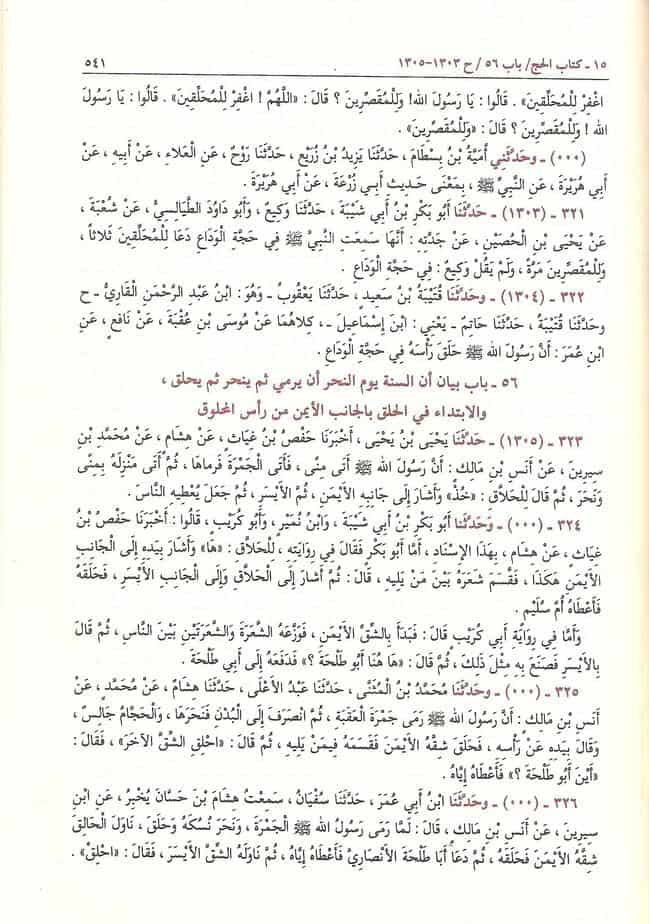 ١٥ ـ كتاب الحج/ باب ٥٦/ ح ١٣٠٣-١٣٠٥ ٥٤١
اغْفِرْ لِلْمُحَلِّقِينَ» . قَالُوا : يَا رَسُولَ اللهِ! وَلِلْمُقَصِّرِينَ ؟ قَالَ : «اللَّهُمَّ ! اغْفِرْ لِلْمُحَلِّقِينَ» . قَالُوا : يَا رَسُولَ
اللهِ ! وَلِلْمُقَصِّرِينَ ؟ قَالَ : «وَلِلْمُقَصِّرِينَ» .
(٠٠٠) ـ وحَدَّثَنِي أُمَيَّةُ بْنُ بِسْطَامَ ، حَدَّثَنَا يَزِيدُ بْنُ زُرَيْعٍ ، حَدَّثَنَا رَوْحٌ ، عَنِ الْعَلَاءِ ، عَنْ أَبِيهِ ، عَنْ
أَبِي هُرَيْرَةَ ، عَنِ النَّبِيِّ ﷺ ، بِمَعْنَى حَدِيثِ أَبِي زُرْعَةَ ، عَنْ أَبِي هُرَيْرَةَ .
٣٢١ ـ (١٣٠٣) ـ حَدَّثَنَا أَبُو بَكْرِ بْنُ أَبِي شَيْبَةَ ، حَدَّثَنَا وَكِيعٌ ، وَأَبُو دَاوُدَ الطَّيَالِسِيُّ ، عَنْ شُعْبَةَ ،
عَنْ يَحْيَى بْنِ الْحُصَيْنِ ، عَنْ جَدَّتِهِ : أَنَّهَا سَمِعَتِ النَّبِيَّ ﷺ فِي حَجَّةِ الْوَدَاعِ دَعَا لِلْمُحَلِّقِينَ ثَلَاثاً ،
وَلِلْمُقَصِّرِينَ مَرَّةً ، وَلَمْ يَقُلْ وَكِيعٌ : فِي حَجَّةِ الْوَدَاعِ .
٣٢٢ ـ (١٣٠٤) ـ وحَدَّثَنَا قُتَيْبَةُ بْنُ سَعِيدٍ ، حَدَّثَنَا يَعْقُوبُ ـ وَهُوَ : ابْنُ عَبْدِ الرَّحْمَنِ الْقَارِيُّ ـ ح
وحَدَّثَنَا قُتَيْبَةُ ، حَدَّثَنَا حَاتِمٌ ـ يَعْنِي : ابْنَ إِسْمَاعِيلَ ـ، كِلَاهُمَا عَنْ مُوسَى بْنِ عُقْبَةَ ، عَنْ نَافِعٍ ، عَنِ
ابْنِ عُمَرَ : أَنَّ رَسُولَ اللهِ ﷺ حَلَقَ رَأْسَهُ فِي حَجَّةِ الْوَدَاعِ .
٥٦ ـ باب بيان أن السنة يوم النحر أن يرمي ثم ينحر ثم يحلق ،
والابتداء في الحلق بالجانب الأيمن من رأس المحلوق
٣٢٣ ـ (١٣٠٥) ـ حَدَّثَنَا يَحْيَى بْنُ يَحْيَى ، أَخْبَرَنَا حَفْصُ بْنُ غِيَاثٍ ، عَنْ هِشَامٍ ، عَنْ مُحَمَّدِ بْنِ
سِيرِينَ ، عَنْ أَنَسِ بْنِ مَالِكٍ : أَنَّ رَسُولَ اللهِ ﷺ أَتَى مِنًى ، فَأَتَى الْجَمْرَةَ فَرَمَاهَا ، ثُمَّ أَتَى مَنْزِلَهُ بِمِنًى
وَنَحَرَ ، ثُمَّ قَالَ لِلْحَلَّاقِ : «خُذْ» وَأَشَارَ إِلَى جَانِبِهِ الْأَيْمَنِ ، ثُمَّ الْأَيْسَرِ ، ثُمَّ جَعَلَ يُعْطِيهِ النَّاسَ .
٣٢٤ ـ (٠٠٠) ـ وحَدَّثَنَا أَبُو بَكْرِ بْنُ أَبِي شَيْبَةَ ، وَابْنُ نُمَيْرٍ ، وَأَبُو كُرَيْبٍ ، قَالُوا : أَخْبَرَنَا حَفْصُ بْنُ
غِيَاثٍ ، عَنْ هِشَامٍ ، بِهَذَا الْإِسْنَادِ ، أَمَّا أَبُو بَكْرٍ فَقَالَ فِي رِوَايَتِهِ ، لِلْحَلَّاقِ : «هَا» وَأَشَارَ بِيَدِهِ إِلَى الْجَانِبِ
الْأَيْمَنِ هَكَذَا ، فَقَسَمَ شَعَرَهُ بَيْنَ مَنْ يَلِيهِ ، قَالَ : ثُمَّ أَشَارَ إِلَى الْحَلَّاقِ وَإِلَى الْجَانِبِ الْأَيْسَرِ ، فَحَلَقَهُ
فَأَعْطَاهُ أُمَّ سُلَيْمٍ .
وَأَمَّا فِي رِوَايَةِ أَبِي كُرَيْبٍ قَالَ : فَبَدَأَ بِالشِّقِّ الْأَيْمَنِ ، فَوَزَّعَهُ الشَّعَرَةَ وَالشَّعَرَتَيْنِ بَيْنَ النَّاسِ ، ثُمَّ قَالَ
بِالْأَيْسَرِ فَصَنَعَ بِهِ مِثْلَ ذَلِكَ ، ثُمَّ قَالَ : «هَا هُنَا أَبُو طَلْحَةَ ؟» فَدَفَعَهُ إِلَى أَبِي طَلْحَةَ .
٣٢٥ ـ (٠٠٠) ـ وحَدَّثَنَا مُحَمَّدُ بْنُ الْمُثَنَّى ، حَدَّثَنَا عَبْدُ الْأَعْلَى ، حَدَّثَنَا هِشَامٌ ، عَنْ مُحَمَّدٍ ، عَنْ
أَنَسِ بْنِ مَالِكٍ : أَنَّ رَسُولَ اللهِ ﷺ رَمَى جَمْرَةَ الْعَقَبَةِ ، ثُمَّ انْصَرَفَ إِلَى الْبُدْنِ فَنَحَرَهَا ، وَالْحَجَّامُ جَالِسٌ ،
وَقَالَ بِيَدِهِ عَنْ رَأْسِهِ ، فَحَلَقَ شِقَّهُ الْأَيْمَنَ فَقَسَمَهُ فِيمَنْ يَلِيهِ ، ثُمَّ قَالَ : «احْلِقِ الشِّقَّ الْآخَرَ» ، فَقَالَ :
«أَيْنَ أَبُو طَلْحَةَ ؟» فَأَعْطَاهُ إِيَّاهُ .
٣٢٦ ـ (٠٠٠) ـ وحَدَّثَنَا ابْنُ أَبِي عُمَرَ ، حَدَّثَنَا سُفْيَانُ ، سَمِعْتُ هِشَامَ بْنَ حَسَّانَ يُخْبِرُ ، عَنِ ابْنِ
سِيرِينَ ، عَنْ أَنَسِ بْنِ مَالِكٍ ، قَالَ : لَمَّا رَمَى رَسُولُ اللهِ ﷺ الْجَمْرَةَ ، وَنَحَرَ نُسُكَهُ وَحَلَقَ ، نَاوَلَ الْحَالِقَ
شِقَّهُ الْأَيْمَنَ فَحَلَقَهُ ، ثُمَّ دَعَا أَبَا طَلْحَةَ الْأَنْصَارِيَّ فَأَعْطَاهُ إِيَّاهُ ، ثُمَّ نَاوَلَهُ الشِّقَّ الْأَيْسَرَ ، فَقَالَ : «احْلِقْ» .